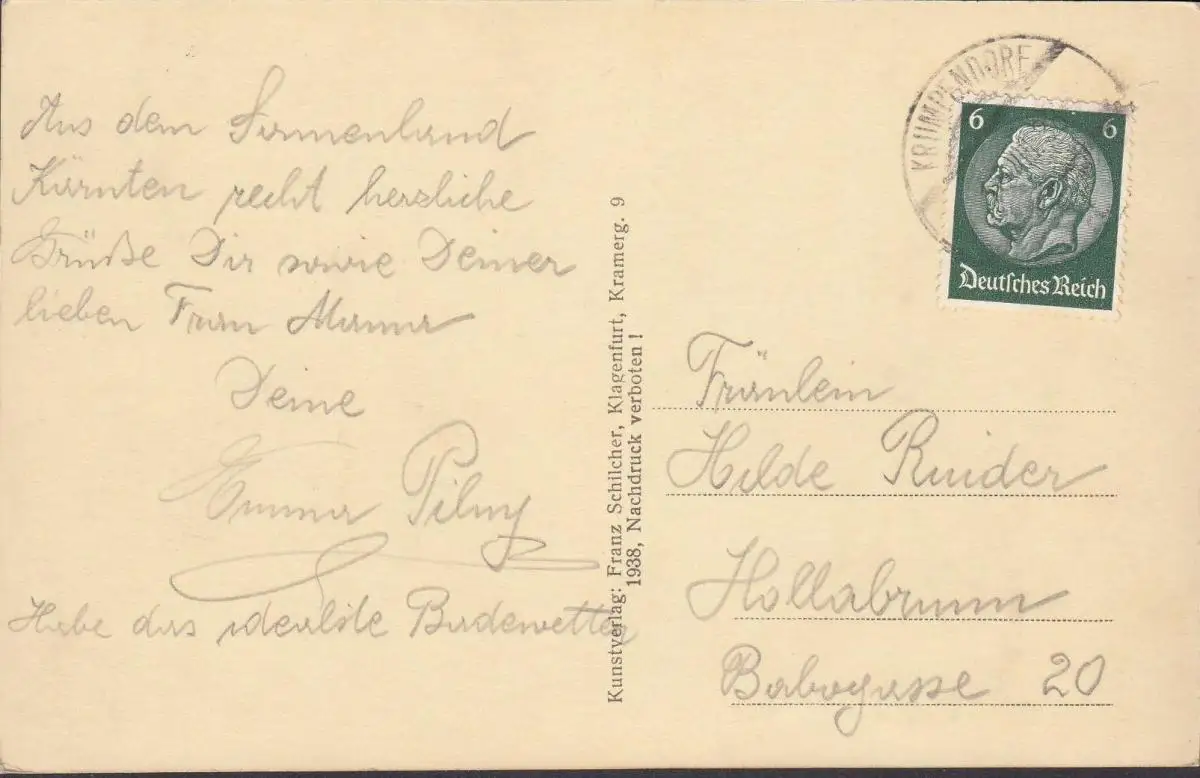 Aus dem Sonnenland
Kärnten recht herzliche
Grüße Dir sowie Deiner
lieben Frau Mama
Deine
Emma Pilny
Habe das idealste Badewetter
Kunstverlag: Franz Schilcher, Klagenfurt, Kramerg. 9
1938, Nachdruck verboten!
KRUMPENDORF
6 6
Deutsches Reich
Fräulein
Hilde Ruider
Hollabrunn
Babogasse 20